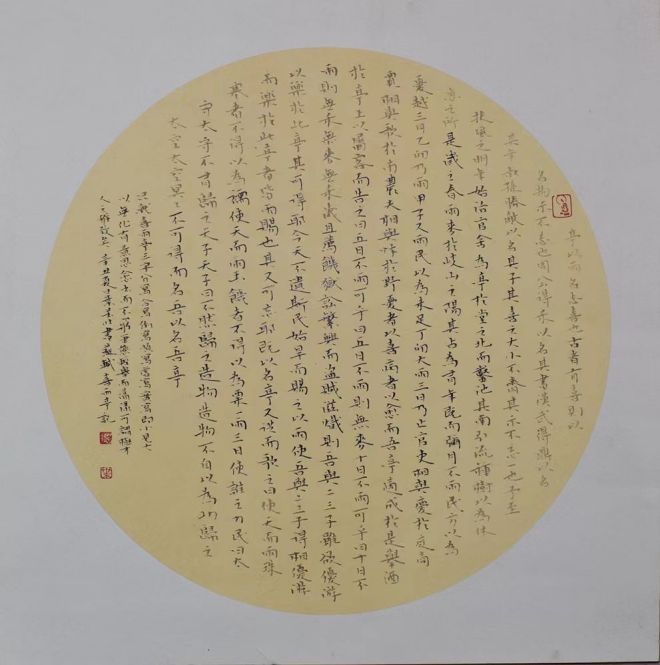 亭以雨名志喜也古者有喜則以
名物示不忘也周公得禾以名其書漢武得鼎以名
其年叔孫勝敵以名其子其喜之大小不齊其示不忘一也予至
扶風之明年始治官舍為亭於堂之北而鑿池其南引流種樹以為休
息之所是歲之春雨麥於岐山之陽其占為有年既而彌月不雨民方以為
憂越三月乙卯乃雨甲子又雨民以為未足丁卯大雨三日乃止官吏相與慶於庭商
賈相與歌於市農夫相與忭於野憂者以喜病者以愈而吾亭適成於是舉酒
於亭上以屬客而告之曰五日不雨可乎曰五日不雨則無麥十日不雨可乎曰十日不
雨則無禾無麥無禾歲且薦饑獄訟繁興而盜賊滋熾則吾與二三子雖欲優游
以樂於此亭其可得耶今天不遺斯民始旱而賜之以雨使吾與二三子得相優游
而樂於此亭者皆雨賜也其又可忘耶既以名亭又從而歌之曰使天而雨珠
寒者不得以為襦使天而雨玉饑者不得以為粟一雨三日伊誰之力民曰太
守太守不有歸之天子天子曰不然歸之造物造物不自以為功歸之
太空太空冥冥不可得而名吾以名吾亭
辛丑夏日
喜雨亭記